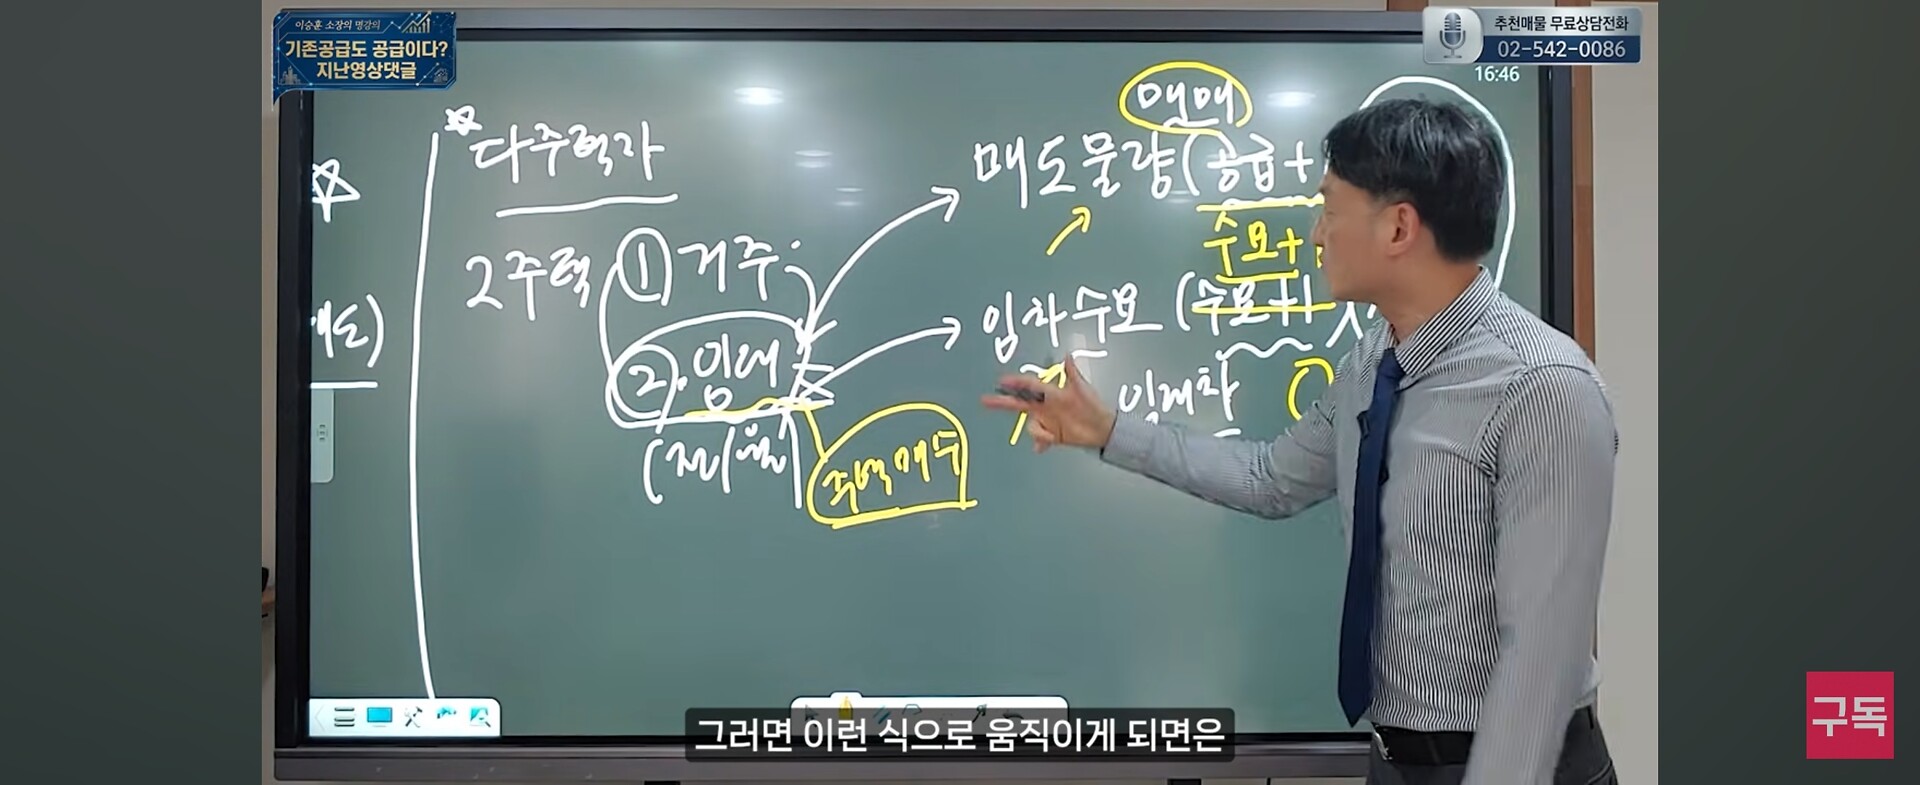 이승훈 소장의 명강의
기존공급도 공급이다?
지난영상댓글
추천매물 무료상담전화
02-542-0086
16:46
다주택자
2주택 ① 거주
② 임대
(전/월)
주택매수
매매
매도물량(공급+
수요+
임차수요 (수요+
임대차
그러면 이런 식으로 움직이게 되면은
구독